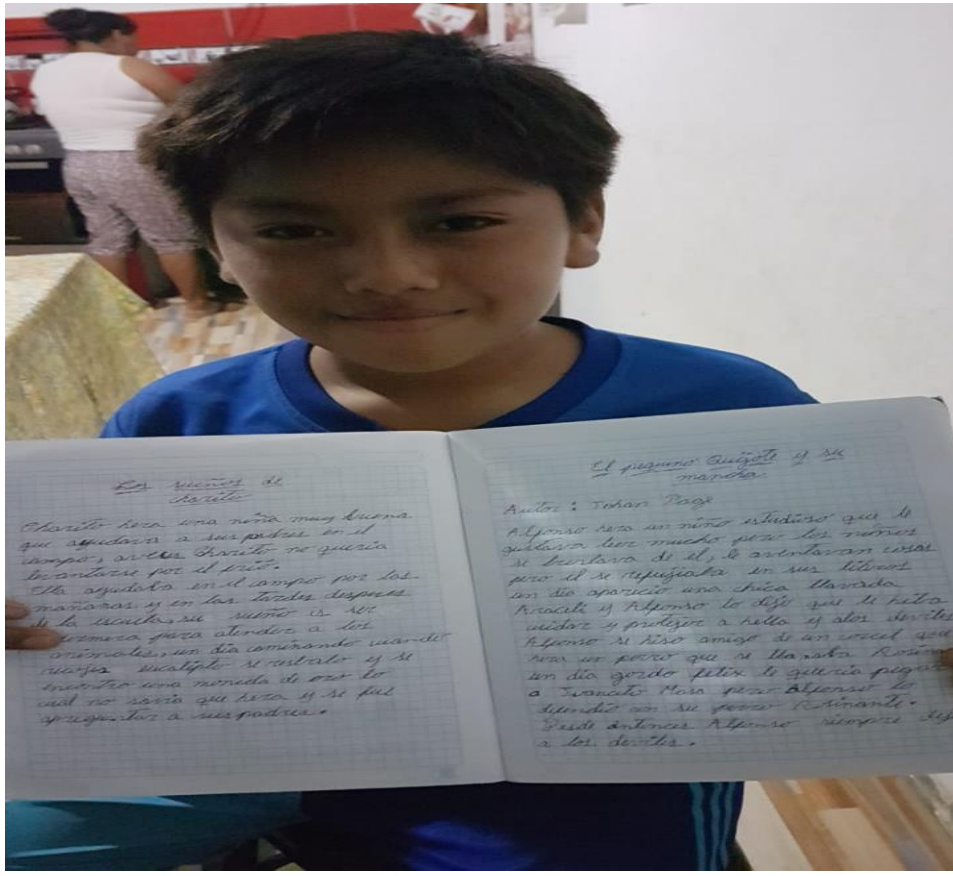 Los sueños de
charito
Charito hera una niña muy buena
que ayudava a sus padres en el
campo, aveces Charito no queria
levantarse por el frio.
Ella ayudaba en el campo por las
mañanas y en las tardes despues
de la escuela, su sueño es ser
para atender a los
animales, un dia caminando cuando
eucalipto se resbalo y se
encontro una moneda de oro lo
cual no savia que hera y se fue
apreguntar a sus padres.
El pequeño Quijote y su
mancha
Autor: Johan Page
Alfonso hera un niño estudioso que le
gustava leer mucho pero los niños
se burlava de el, le aventavan cosas
pero el se refugiaba en sus libros
un dia aparecio una chica llamada
Araceli y Alfonso lo dijo que le hiba
cuidar y proteger a hella y alos deviles
Alfonso se hiso amigo de un corcel que
hera un perro que se llamaba
un dia gordo felix le queria pegar
a Juancito Masa pero Alfonso lo
defendio con su perro Rosinante.
Desde entonces Alfonso siempre
a los deviles.